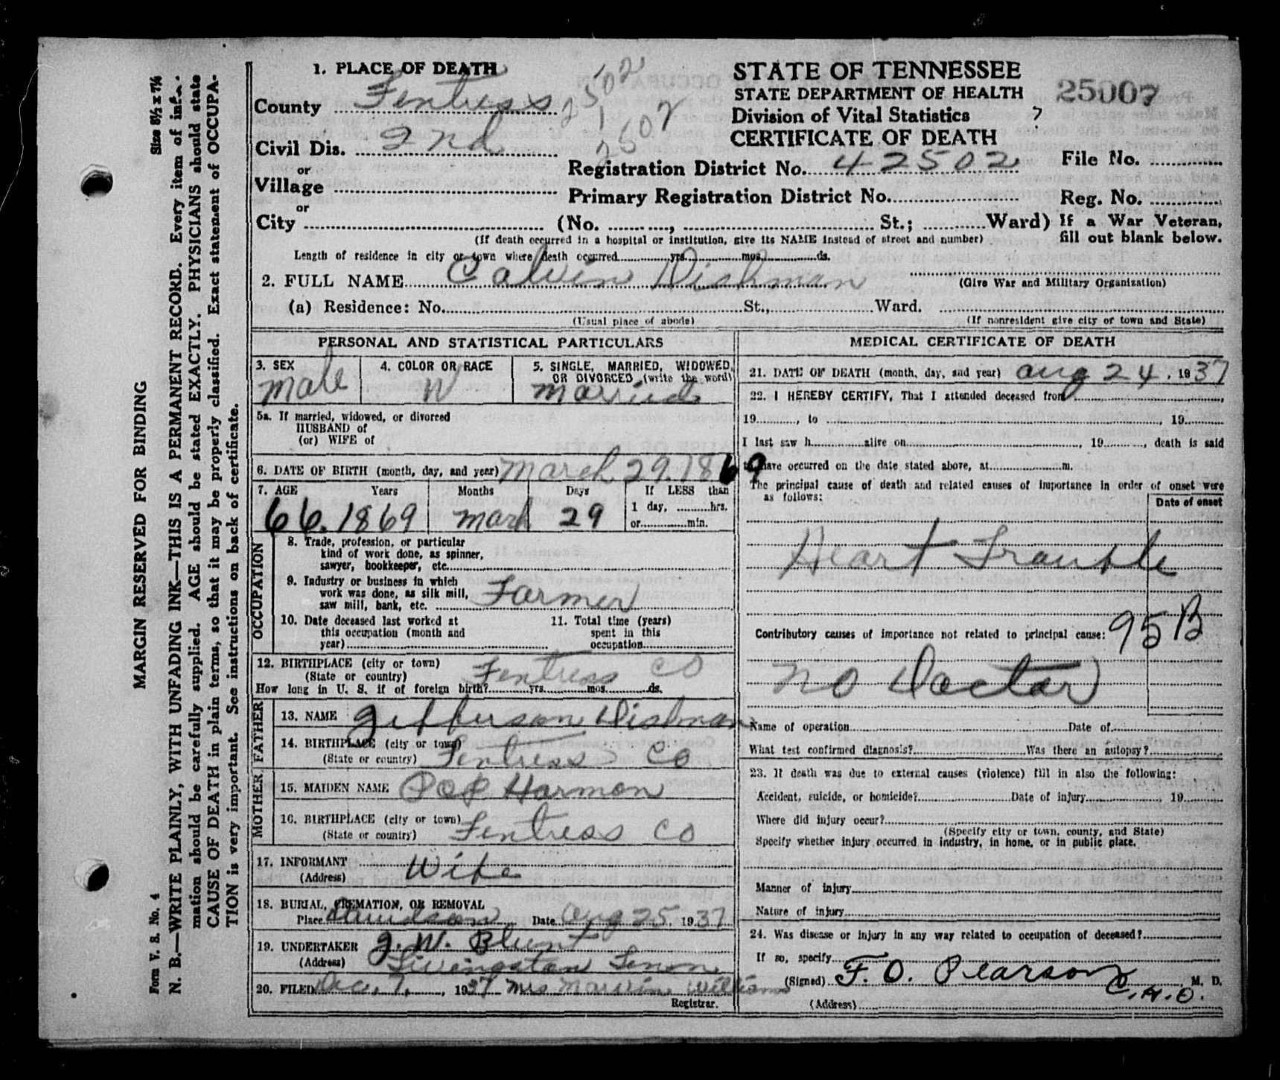 MARGIN RESERVED FOR BINDING
Form V. S. No. 4
Size 8½ x 7¼
N. B.—WRITE PLAINLY, WITH UNFADING INK—THIS IS A PERMANENT RECORD. Every item of infor-
mation should be carefully supplied. AGE should be stated EXACTLY. PHYSICIANS should state
CAUSE OF DEATH in plain terms, so that it may be properly classified. Exact statement of OCCUPA-
TION is very important. See instructions on back of certificate.
1. PLACE OF DEATH
County Fentress
Civil Dis. 2nd
or
Village
or
City (No. , St.; Ward)
STATE OF TENNESSEE
STATE DEPARTMENT OF HEALTH
Division of Vital Statistics 7
CERTIFICATE OF DEATH
25007
Registration District No. 42502
File No.
Primary Registration District No.
Reg. No.
If a War Veteran,
fill out blank below.
(If death occurred in a hospital or institution, give its NAME instead of street and number)
Length of residence in city or town where death occurred yrs. mos. ds.
2. FULL NAME Calvin Dishman
(Give War and Military Organization)
(a) Residence: No. St., Ward.
(Usual place of abode)
(If nonresident give city or town and State)
PERSONAL AND STATISTICAL PARTICULARS
3. SEX
Male
4. COLOR OR RACE
W
5. SINGLE, MARRIED, WIDOWED,
OR DIVORCED (write the word)
Married
5a. If married, widowed, or divorced
HUSBAND of
(or) WIFE of
6. DATE OF BIRTH (month, day, and year) March 29. 1869
7. AGE Years Months Days If LESS than
1 day, hrs.
or min.
66. 1869 Mach 29
OCCUPATION
8. Trade, profession, or particular
kind of work done, as spinner,
sawyer, bookkeeper, etc.
9. Industry or business in which
work was done, as silk mill,
saw mill, bank, etc. Farmer
10. Date deceased last worked at
this occupation (month and
year)
11. Total time (years)
spent in this
occupation
12. BIRTHPLACE (city or town)
(State or country) Fentress CO
How long in U. S. if of foreign birth? yrs. mos. ds.
FATHER
13. NAME Jefferson Dishman
14. BIRTHPLACE (city or town)
(State or country) Fentress CO
MOTHER
15. MAIDEN NAME Pop Harmon
16. BIRTHPLACE (city or town)
(State or country) Fentress CO
17. INFORMANT
(Address) Wife
18. BURIAL, CREMATION, OR REMOVAL
Place Davidson Date Aug 25, 1937
19. UNDERTAKER J. W. Blunt
(Address) Livingston Tenn
20. FILED Dec. 7, 1937 Mrs Williams
Registrar.
MEDICAL CERTIFICATE OF DEATH
21. DATE OF DEATH (month, day, and year) Aug 24, 1937
22. I HEREBY CERTIFY, That I attended deceased from
19 , to , 19
I last saw h alive on , 19 , death is said
to have occurred on the date stated above, at m.
The principal cause of death and related causes of importance in order of onset were
as follows:
Date of onset
Heart Trouble
Contributory causes of importance not related to principal cause: 95B
No Doctor
Name of operation Date of
What test confirmed diagnosis? Was there an autopsy?
23. If death was due to external causes (violence) fill in also the following:
Accident, suicide, or homicide? Date of injury 19
Where did injury occur?
(Specify city or town, county, and State)
Specify whether injury occurred in industry, in home, or in public place.
Manner of injury
Nature of injury
24. Was disease or injury in any way related to occupation of deceased?
If so, specify
(Signed) F. O. Pearson M. D.
C.H.O.
(Address)